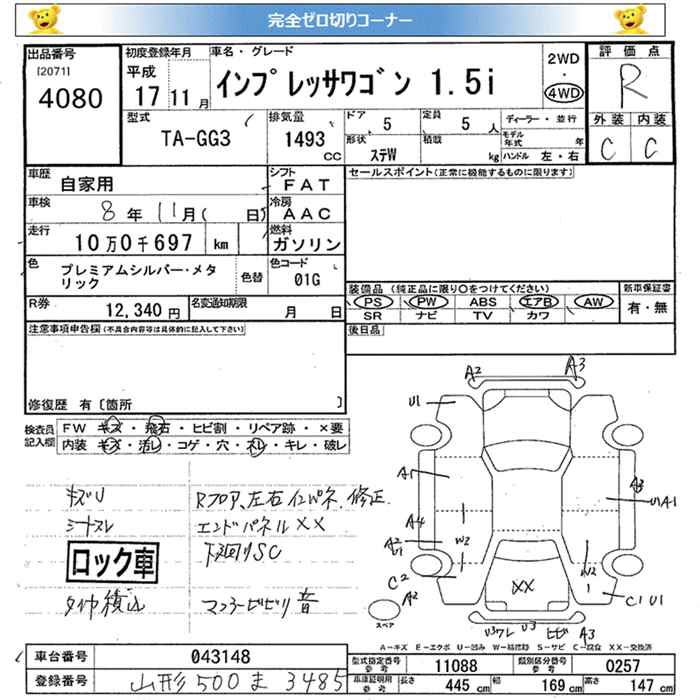 完全ゼロ切りコーナー
出品番号
[2071]
4080
初度登録年月
平成
17 11月
車名・グレード
インプレッサワゴン 1.5i
2WD
・
4WD
評価点
R
外装 内装
C C
型式
TA-GG3
排気量
1493
CC
ドア 5
形状 ステW
定員 5人
積載 kg
ディーラー・並行
モデル年式 年
ハンドル 左・右
車歴
自家用
シフト
FAT
車検
8年11月( 日)
冷房
AAC
走行
10万0千697 km
燃料
ガソリン
色
プレミアムシルバー・メタリック
色替
色コード
01G
R券
12,340円
名変通知期限
月 日
セールスポイント(正常に機能するものに限ります)
装備品 (純正品に限り○をつけてください)
PS PW ABS エアB AW
SR ナビ TV カワ
新車保証書
有・無
後日品
注意事項申告欄(不具合内容等は具体的に記入して下さい)
修復歴 有〔箇所 〕
検査員記入欄
FW キズ・飛石・ヒビ割・リペア跡・×要
内装 キズ・汚レ・コゲ・穴・スレ・キレ・破レ
キズU
シートスレ
ロック車
タイヤ積込
Rフロア、左右インパネ、修正、
エンドパネルXX
下廻りSC
マフラービビリ音
A2 A3
U1
A1
A4
A2
U1
W2
C2
A2
スペア
XX
A3
U1A1
W2
1
C1U1
U3ワレ U3 ヒビ A3
A-キズ E-エクボ U-凹み W-補修跡 S-サビ C-腐食 XX-交換済
車台番号 043148
登録番号 山形500ま3485
型式指定番号 11088 類別区分番号 0257
車庫証明用参考 長さ 445cm 幅 169cm 高さ 147cm